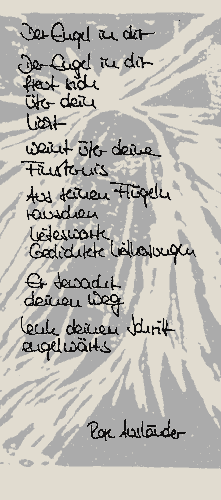 Der Engel in dir
Der Engel in dir
freut sich
über dein
Licht
weint über deine
Finsternis
Aus seinen Flügeln
rauschen
Liebesworte
Gedichte Liebkosungen
Er bewacht
deinen Weg
Lenk deinen Schritt
engelwärts
Rose Ausländer